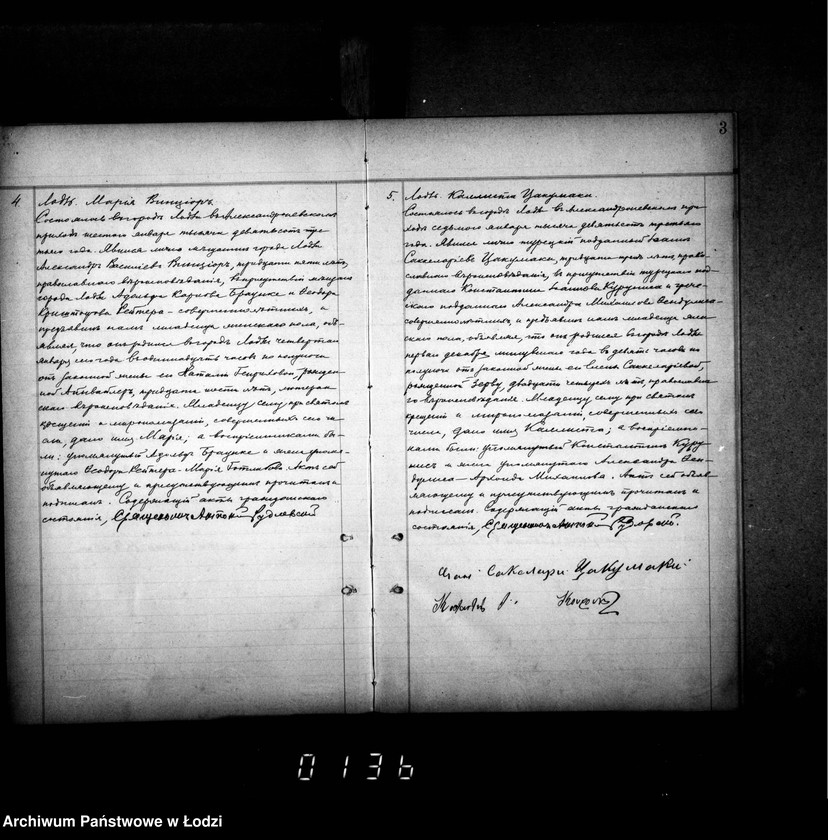 3
4. Лодзь. Марія Винціоръ.
Состоялось въ городѣ Лодзи въ Александроневскомъ
приходѣ шестого января тысяча девятьсотъ тре-
тьяго года. Явился лично мѣщанинъ города Лодзи
Александръ Васильевъ Винціоръ, тридцати пяти лѣтъ,
православнаго вѣроисповѣданія, въ присутствіи мѣщанъ
города Лодзи Адольфа Карлова Браунке и Теодора
совершеннолѣтнихъ, и
предъявилъ намъ младенца женскаго пола, объ-
являя, что она родилась въ городѣ Лодзи четвертаго
января сего года въ одиннадцать часовъ по полуночи
отъ законной жены его Наталіи рожден-
ной тридцати шести лѣтъ, лютеран-
скаго вѣроисповѣданія. Младенцу сему при святомъ
крещеніи и мѵропомазаніи, совершенныхъ сего чи-
сла, дано имя Марія; а воспріемниками бы-
ли: упомянутый Адольфъ Браунке и жена упомя-
нутаго Теодора Марія Готлибова. Актъ сей
объявляющему и присутствующимъ прочитанъ и
подписанъ. Содержащій акты гражданскаго
состоянія, Священникъ Антоній Рудлевскій
5. Лодзь. Каллиста Цакумаки.
Состоялось въ городѣ Лодзи въ Александроневскомъ при-
ходѣ седьмого января тысяча девятьсотъ третьяго
года. Явился лично турецкій подданный Іоаннъ
Сакеларіевъ Цакумаки, тридцати трехъ лѣтъ, право-
славнаго вѣроисповѣданія, въ присутствіи турецкаго под-
даннаго Константина Іоаннова и грече-
скаго подданнаго Александра
совершеннолѣтнихъ, и предъявилъ намъ младенца жен-
скаго пола, объявляя, что она родилась въ городѣ Лодзи
перваго декабря минувшаго года въ девять часовъ по
полуночи отъ законной жены его Елены Сакеларіевой,
рожденной Зерву, двадцати четырехъ лѣтъ, православна-
го вѣроисповѣданія. Младенцу сему при святомъ
крещеніи и мѵропомазаніи, совершенныхъ сего
числа, дано имя Каллиста; а воспріемни-
ками были: упомянутый Константинъ Куру-
нисъ и жена упомянутаго Александра
Михайлова. Актъ сей объяв-
ляющему и присутствующимъ прочитанъ и
подписанъ. Содержащій акты гражданскаго
состоянія, Священникъ Антоній Рудлевскій.
Сакелари Цакумаки
0136
Archiwum Państwowe w Łodzi